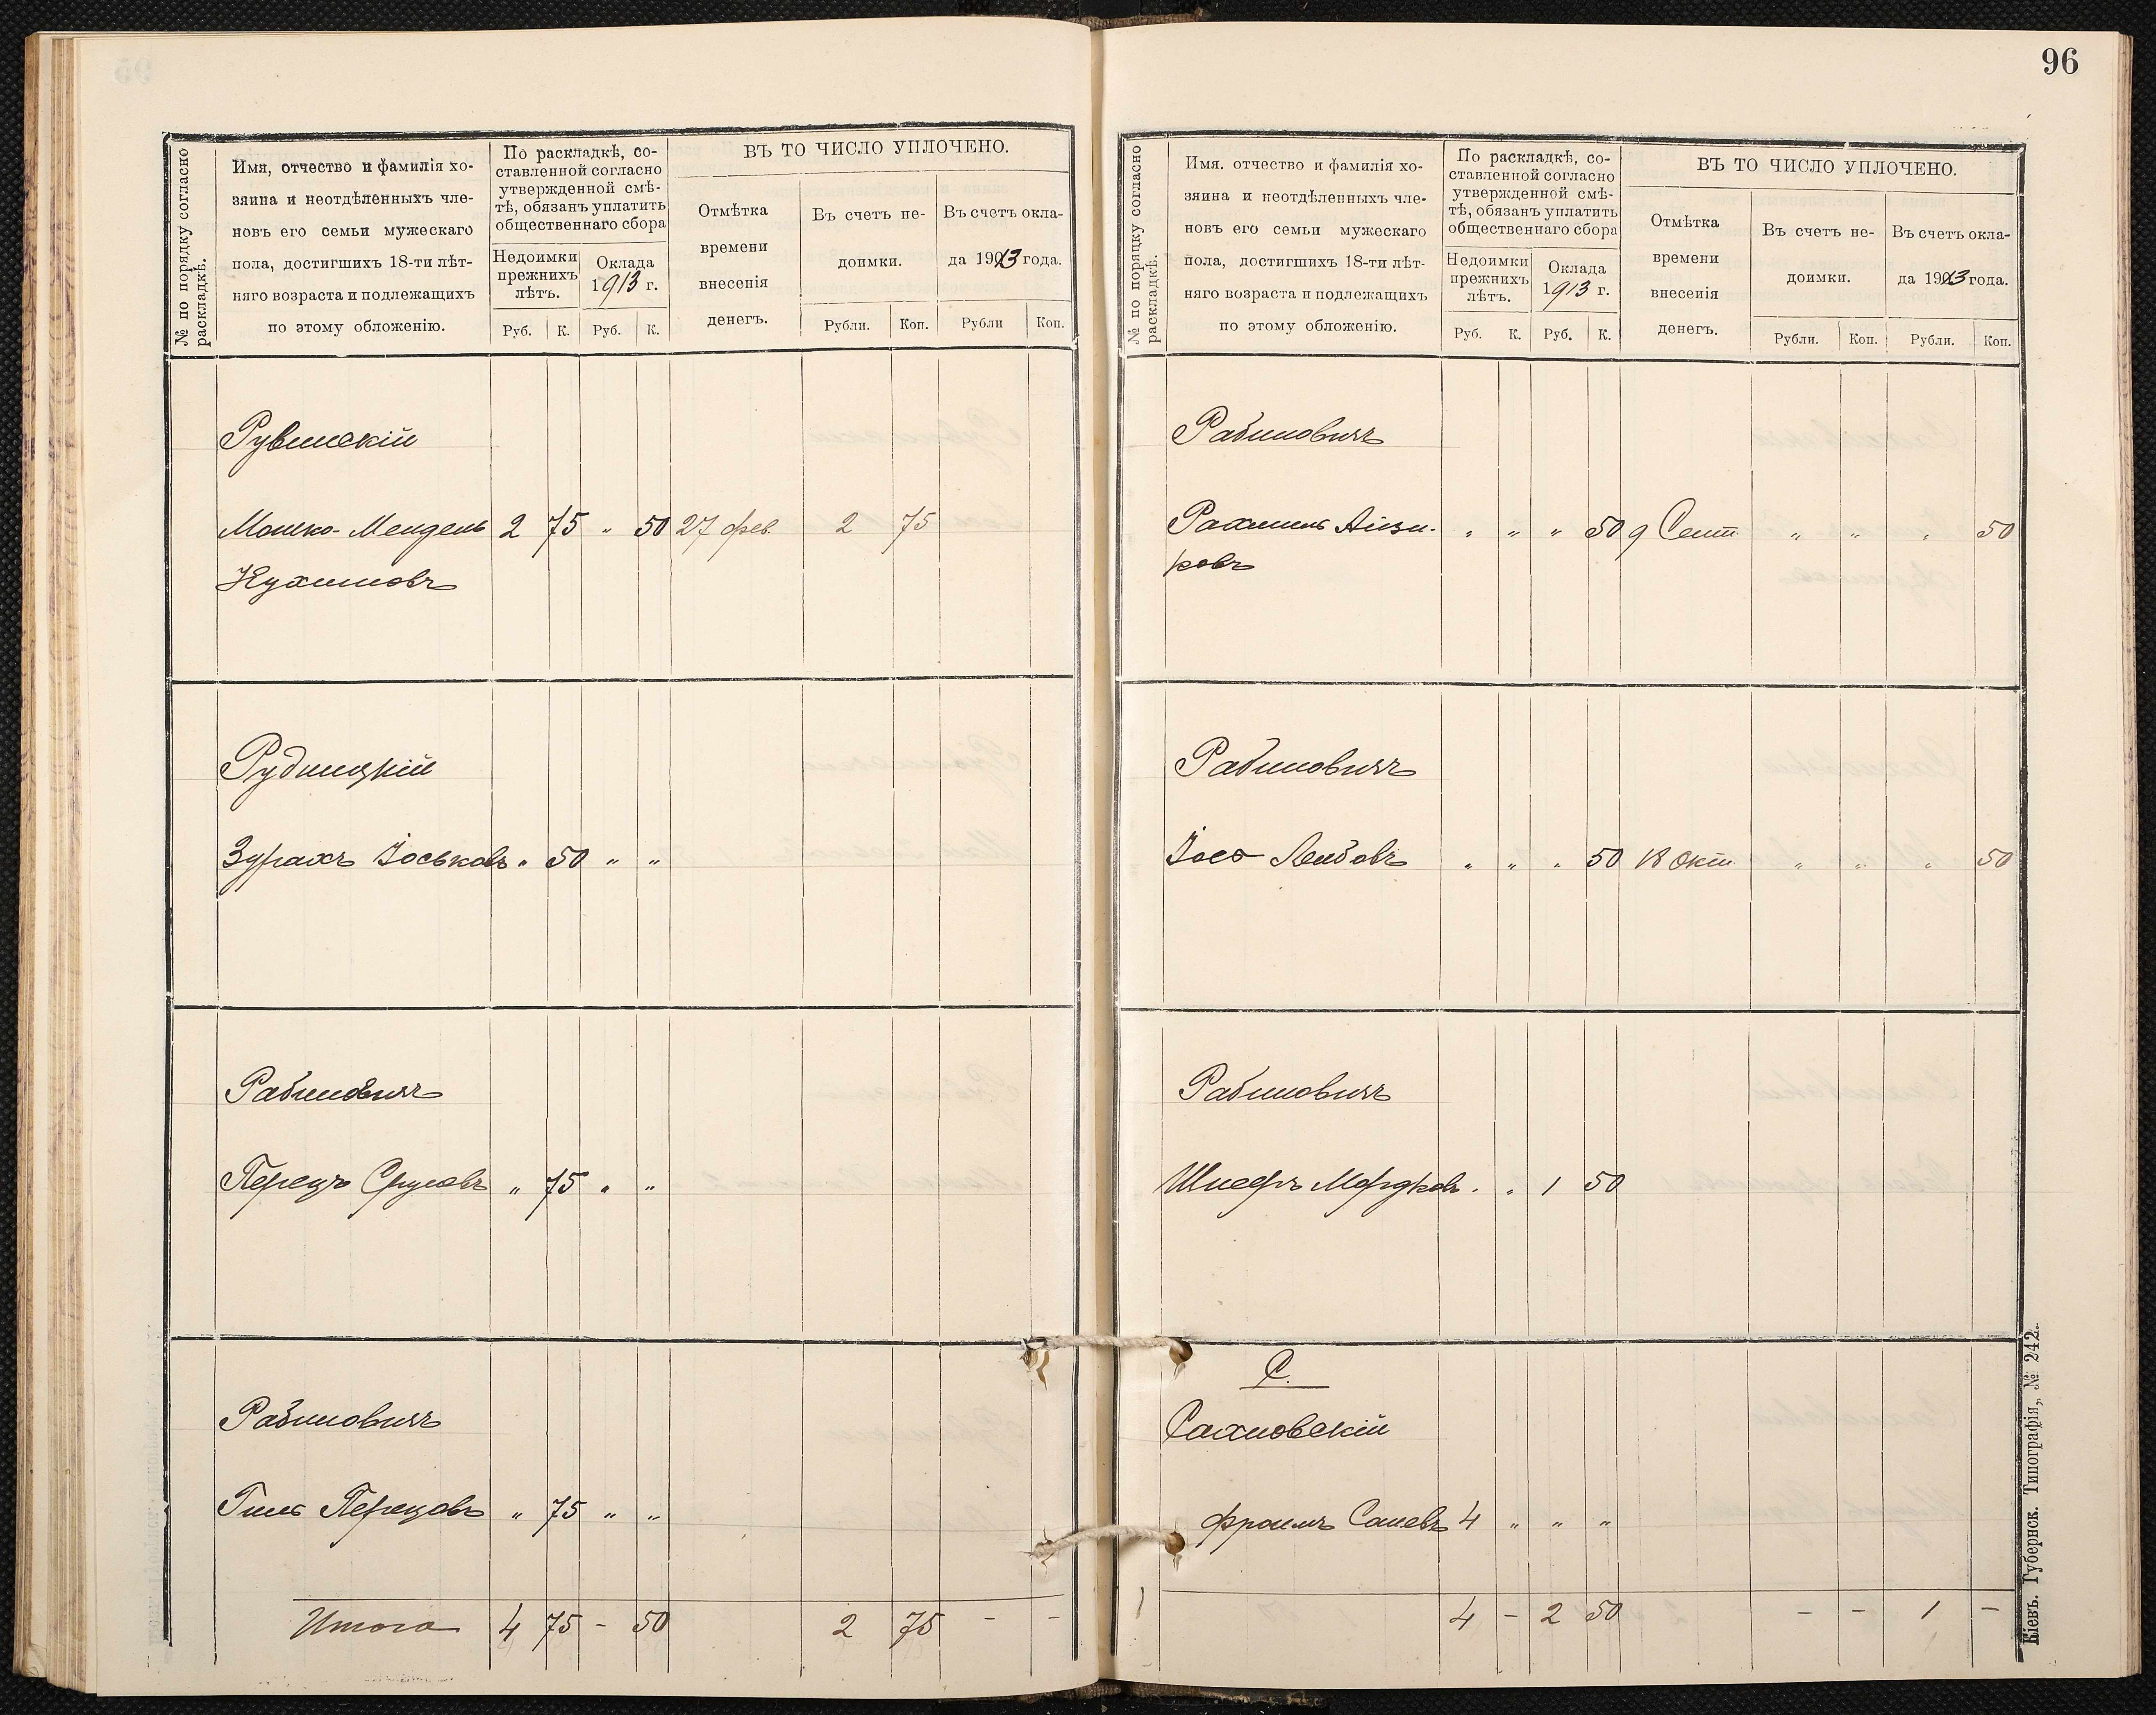 96
№ по порядку согласно
раскладкѣ.
Имя, отчество и фамилія хо-
зяина и неотдѣленныхъ чле-
новъ его семьи мужескаго
пола, достигшихъ 18-ти лѣт-
няго возраста и подлежащихъ
по этому обложенію.
По раскладкѣ, со-
ставленной согласно
утвержденной смѣ-
тѣ, обязанъ уплатить
общественнаго сбора
Недоимки
прежнихъ
лѣтъ.
Оклада
1913 г.
Руб. К. Руб. К.
ВЪ ТО ЧИСЛО УПЛОЧЕНО.
Отмѣтка
времени
внесенія
денегъ.
Въ счетъ не-
доимки.
Въ счетъ окла-
да 1913 года.
Рубли. Коп. Рубли Коп.
Рувинскій
Мошко-Мендель 2 75 " 50 27 фев. 2 75
Нухимовъ
Рудницкій
Зурахъ Іоськовъ " 50 " "
Рабиновичъ
Перецъ Сруловъ " 75 " "
Рабиновичъ
Гиль Перецовъ " 75 " "
Итого 4 75 - 50 2 75 - -
№ по порядку согласно
раскладкѣ.
Имя, отчество и фамилія хо-
зяина и неотдѣленныхъ чле-
новъ его семьи мужескаго
пола, достигшихъ 18-ти лѣт-
няго возраста и подлежащихъ
по этому обложенію.
По раскладкѣ, со-
ставленной согласно
утвержденной смѣ-
тѣ, обязанъ уплатить
общественнаго сбора
Недоимки
прежнихъ
лѣтъ.
Оклада
1913 г.
Руб. К. Руб. К.
ВЪ ТО ЧИСЛО УПЛОЧЕНО.
Отмѣтка
времени
внесенія
денегъ.
Въ счетъ не-
доимки.
Въ счетъ окла-
да 1913 года.
Рубли. Коп. Рубли. Коп.
Рабиновичъ
Рахмиль Айзи- " " " 50 9 Сент. " " " 50
ковъ
Рабиновичъ
Іось Лейбовъ " " " 50 18 Окт. " " " 50
Рабиновичъ
Шнееръ Мордков. " " 1 50
С.
Сахновскій
Фроимъ Саневъ 4 " " "
4 - 2 50 - - 1 -
Кіевъ. Губернск. Типографія, № 242.